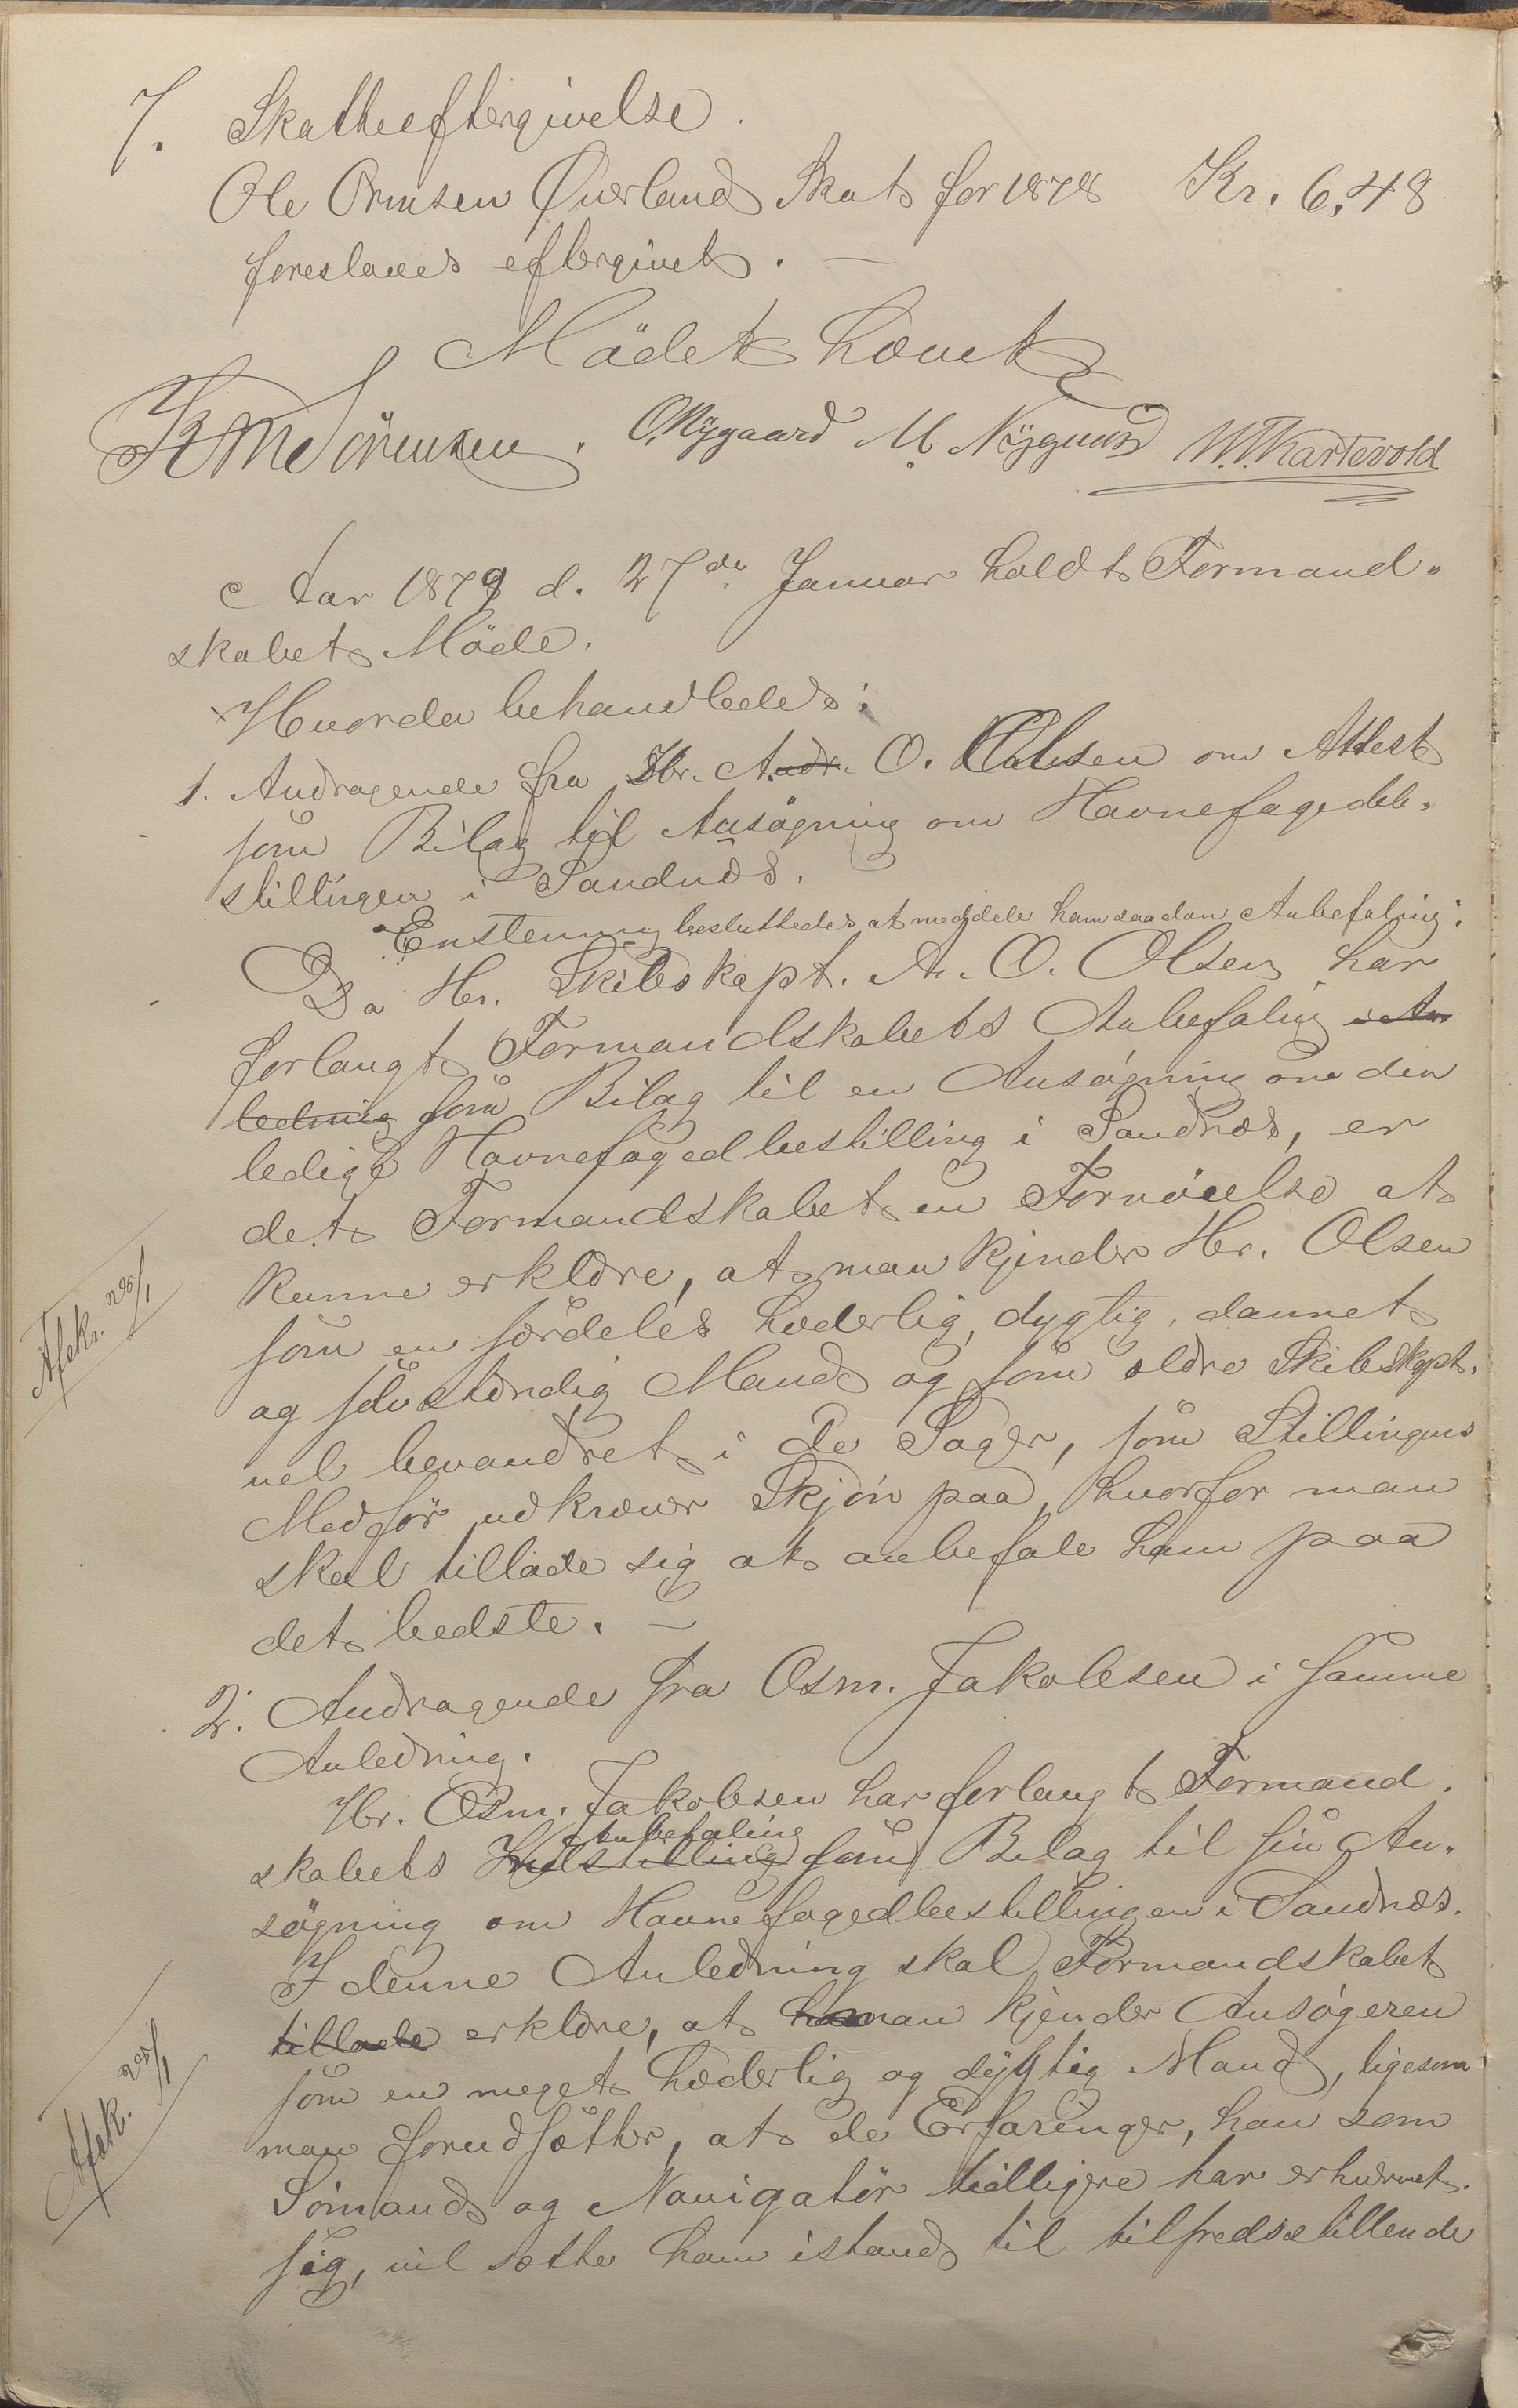 7. Skatteeftergivelse.
Ole Ormsen Øverland Skat for 1878 Kr. 6,48
foreslaaes eftergivet. —
Mödet hævet
Sörensen. O. Nygaard M. Nygaard W. T. Kartevold
Aar 1879 d. 27de Januar holdt Formand-
skabet Möde.
Hvorda behandledes:
1. Andragende fra Hr. Andr. O. Olsen om Attest
som Bilag til Ansögning om Havnefogedbe-
stillingen i Sandnæs.
Enstemmig besluttedes at meddele ham saadan Anbefaling:
Da Hr. Skibskapt. A. O. Olsen har
forlangt Formandskabets Anbefaling i An
ledning som Bilag til en Ansögning om den
ledige Havnefogedbestilling i Sandnæs, er
det Formandskabet en Fornöielse at
kunne erklære, at man kjender Hr. Olsen
som en særdeles hæderlig, dygtig, dannet
og selvstændig Mand og som ældre Skibskapt.
vel bevandret i de Sager, som Stillingens
Medfør udkræver Skjön paa, hvorfor man
skal tillade sig at anbefale ham paa
det bedste. —
Afskr. 28/1
2. Andragende fra Osm. Jakobsen i samme
Anledning.
Hr. Osm. Jakobsen har forlangt Formand-
Anbefaling
skabets Indstilling som Bilag til sin An-
søgning om Havnefogedbestillingen i Sandnæs.
I denne Anledning skal Formandskabet
tillade erklære, at man kjender Ansögeren
som en meget hæderlig og dygtig Mand, ligesom
man forudsætter, at de Erfaringer, han som
Sömand og Navigatör tidligere har erhvervet
sig, vil sætte ham istand til tilfredsstillende
Afskr. 28/1